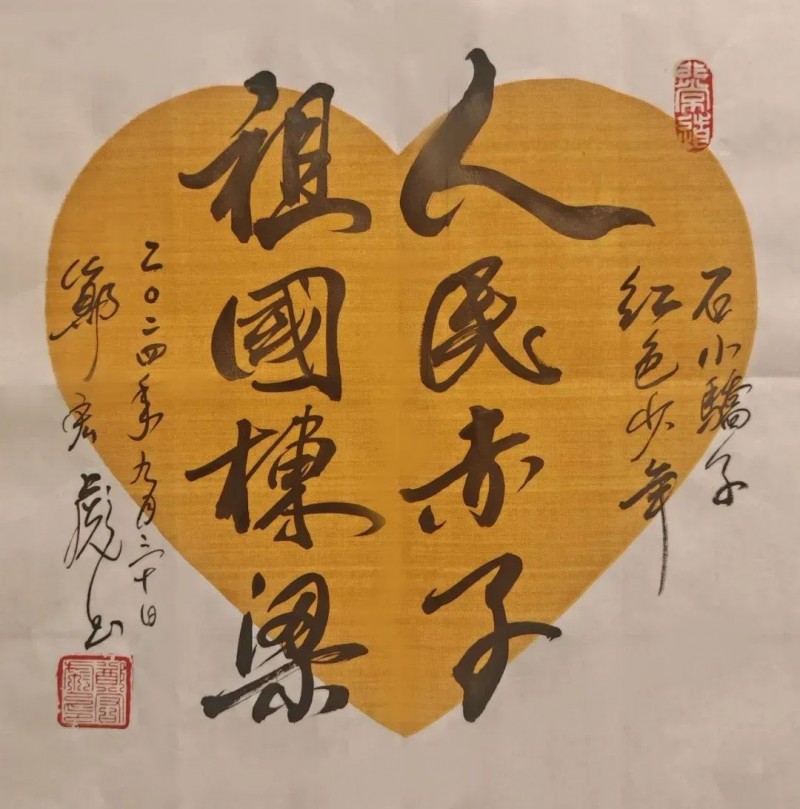 非常道
石小驕子
红色少年
人民赤子
祖國棟梁
二〇二四年九月三十日
鄭宏彪书